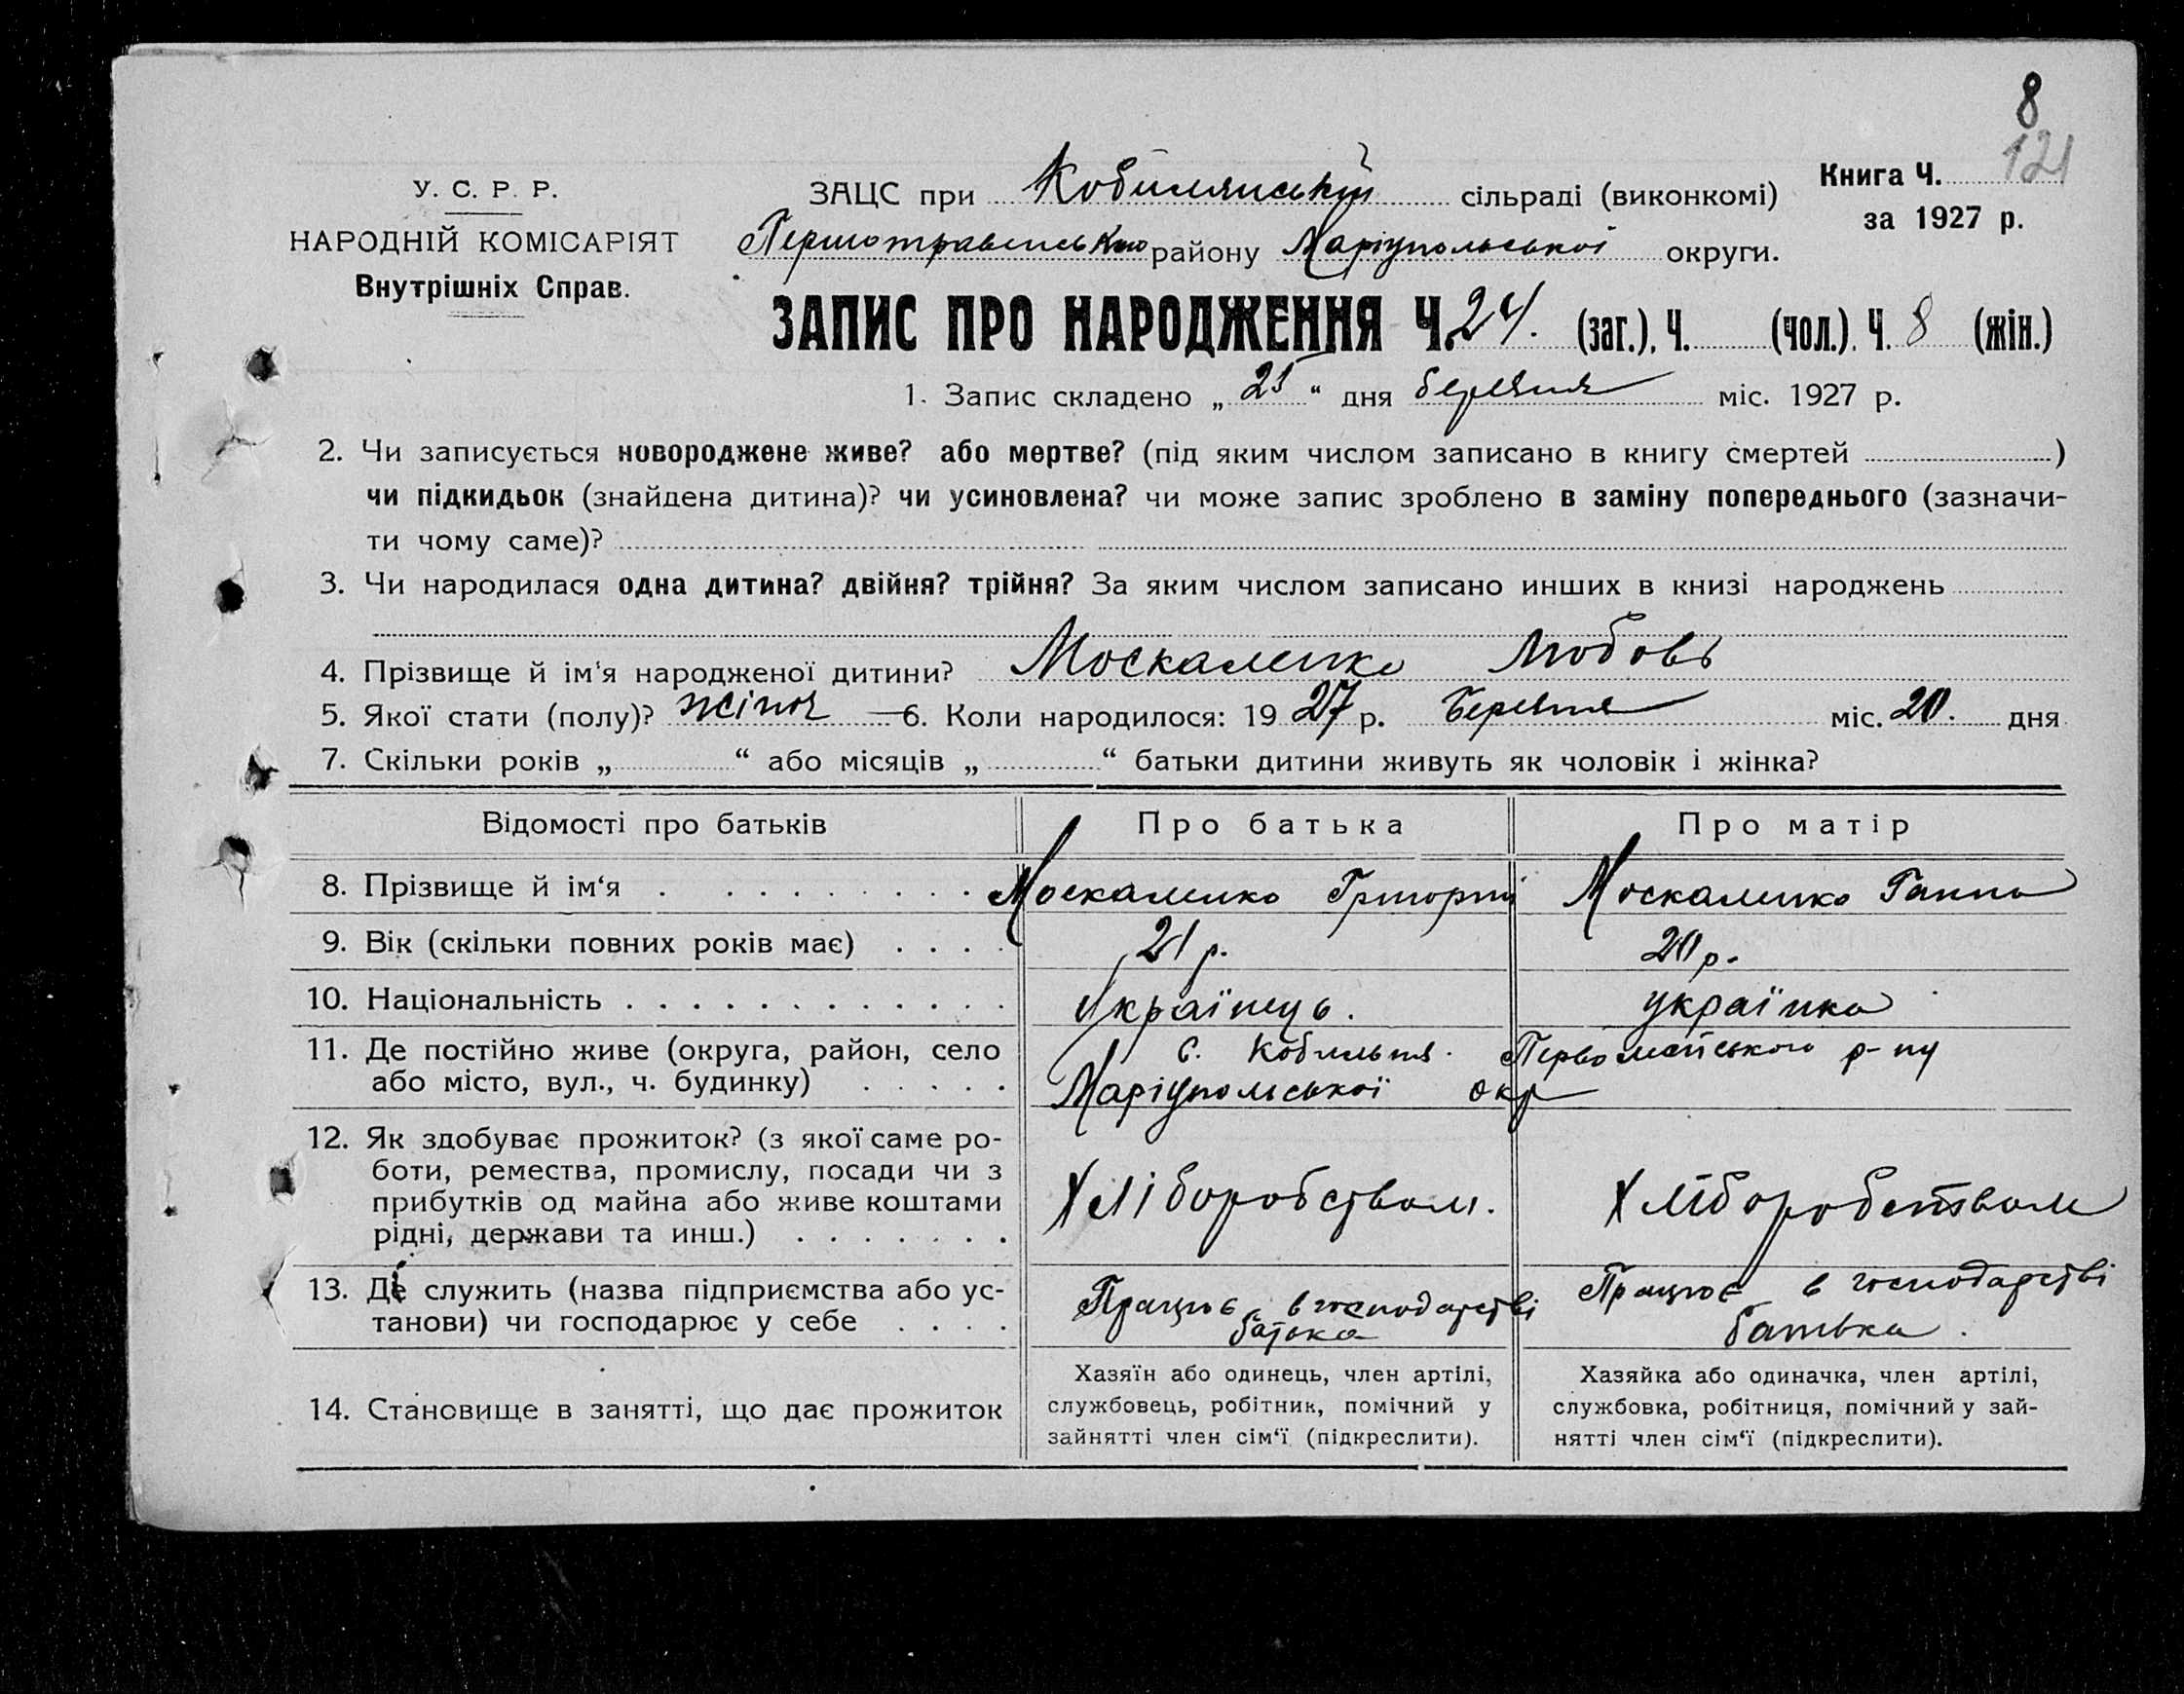 8
121
У. С. Р. Р.
НАРОДНІЙ КОМІСАРІЯТ
Внутрішніх Справ.
ЗАЦС при Кобилянській сільраді (виконкомі)
Першотравенського району Маріупольської округи.
Книга Ч.
за 1927 р.
ЗАПИС ПРО НАРОДЖЕННЯ Ч. 24. (заг.), Ч. (чол.). Ч. 8 (жін.)
1. Запис складено „ 25 “ дня березня міс. 1927 р.
2. Чи записується новороджене живе? або мертве? (під яким числом записано в книгу смертей )
чи підкидьок (знайдена дитина)? чи усиновлена? чи може запис зроблено в заміну попереднього (зазначи-
ти чому саме)?
3. Чи народилася одна дитина? двійня? трійня? За яким числом записано инших в книзі народжень
4. Прізвище й ім'я народженої дитини? Москаленко Любовь
5. Якої стати (полу)? жіноч 6. Коли народилося: 19 27 р. Березня міс. 20. дня
7. Скільки років „ “ або місяців „ “ батьки дитини живуть як чоловік і жінка?
Відомості про батьків Про батька Про матір
8. Прізвище й ім‘я Москаленко Григорій Москаленко Ганна
9. Вік (скільки повних років має) 21 р. 20 р.
10. Національність Українець. українка
11. Де постійно живе (округа, район, село с. Кобильня. Первомайського р-ну
або місто, вул., ч. будинку) Маріупольської окр
12. Як здобуває прожиток? (з якої саме ро-
боти, ремества, промислу, посади чи з
прибутків од майна або живе коштами
рідні, держави та инш.)
Хліборобством. Хліборобством
13. Де служить (назва підприємства або ус-
танови) чи господарює у себе
Працює в господарстві
батька
Працює в господарстві
батька.
14. Становище в занятті, що дає прожиток
Хазяїн або одинець, член артілі,
службовець, робітник, помічний у
зайнятті член сім‘ї (підкреслити).
Хазяйка або одиначка, член артілі,
службовка, робітниця, помічний у зай-
нятті член сім‘ї (підкреслити).